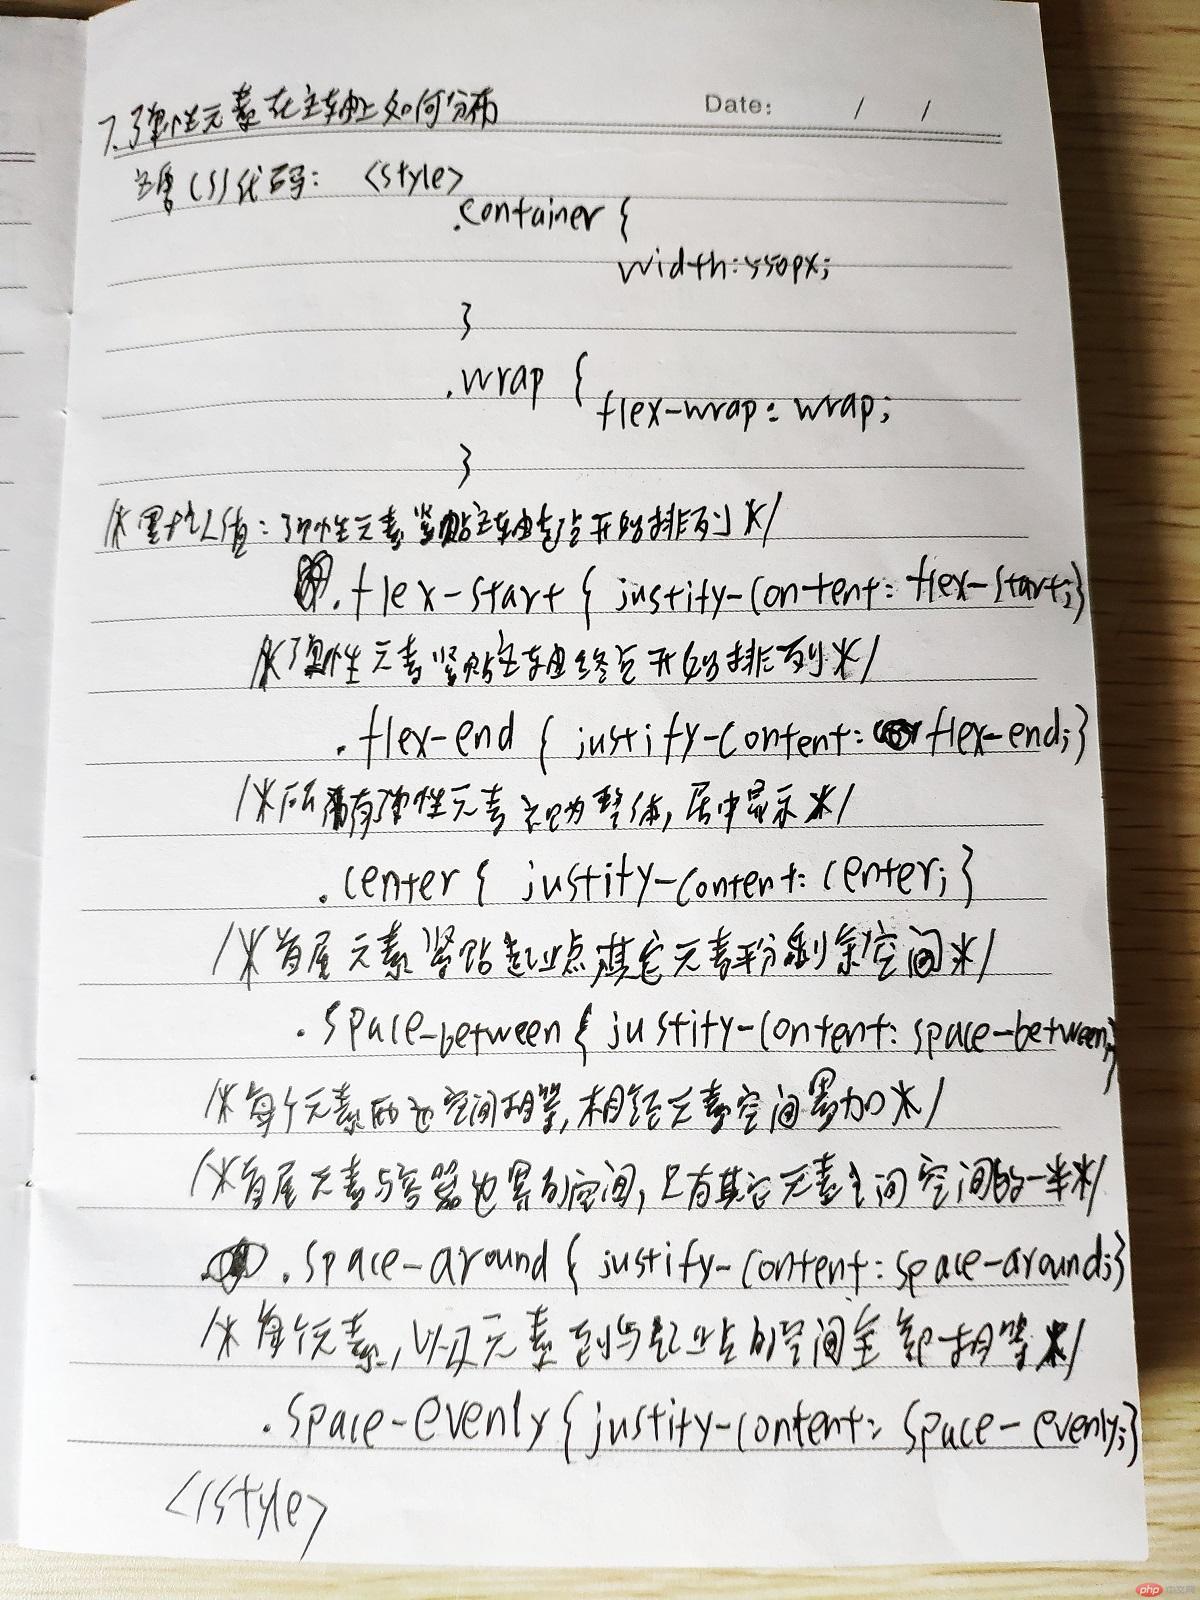 7.弹性元素在主轴上如何分布
Date: / /
主要CSS代码: <style>
.container {
width:550px;
}
.wrap {
flex-wrap: wrap;
}
/*默认值:弹性元素紧贴主轴起点开始排列*/
.flex-start { justify-content: flex-start;}
/*弹性元素紧贴主轴终点开始排列*/
.flex-end { justify-content: flex-end;}
/*所有弹性元素视为整体,居中显示*/
.center { justify-content: center; }
/*首尾元素紧贴起止点其它元素平分剩余空间*/
.space-between { justify-content: space-between;}
/*每个元素两边空间相等,相邻元素空间累加*/
/*首尾元素与容器边界的空间,只有其它元素之间空间的一半*/
.space-around { justify-content: space-around;}
/*每个元素,以及元素到与起止点的空间全部相等*/
.space-evenly { justify-content: space-evenly;}
</style>
php 中文网